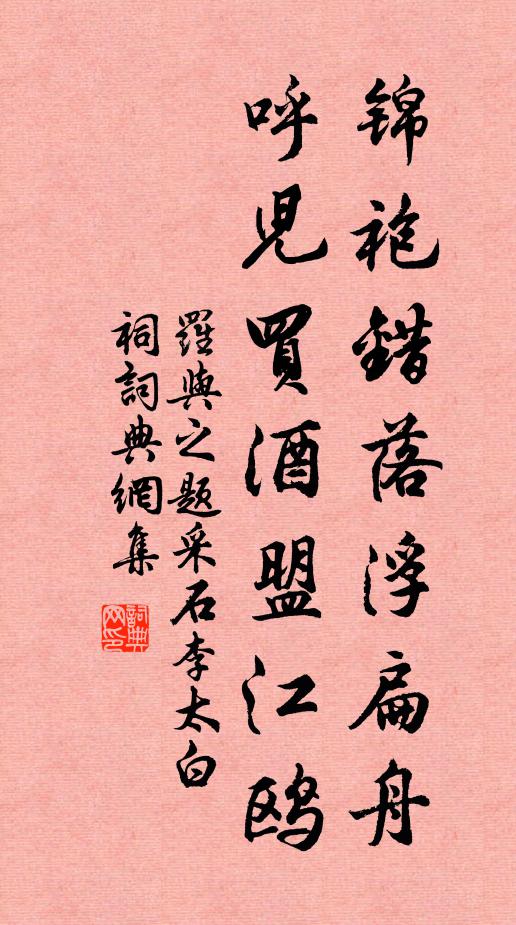 锦袍錯落浮扁舟
呼児買酒盟江鸥
羅與之题采石李太白
祠詞典網集
詞典网印